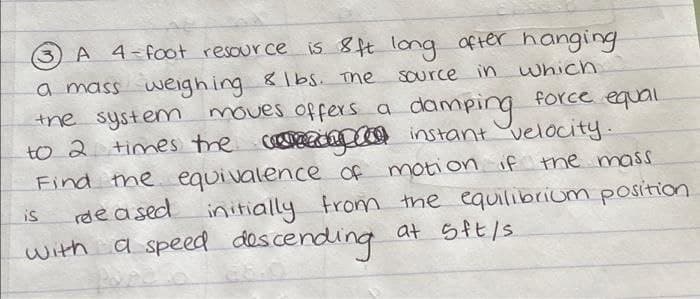 ③ A 4-foot resource is 8ft long after hanging
a mass weighing 8 lbs. The source in which
the system moves offers a damping force equal
to 2 times the instant velocity.
Find the equivalence of motion if the mass
is released initially from the equilibrium position
with a speed descending at 5ft/s